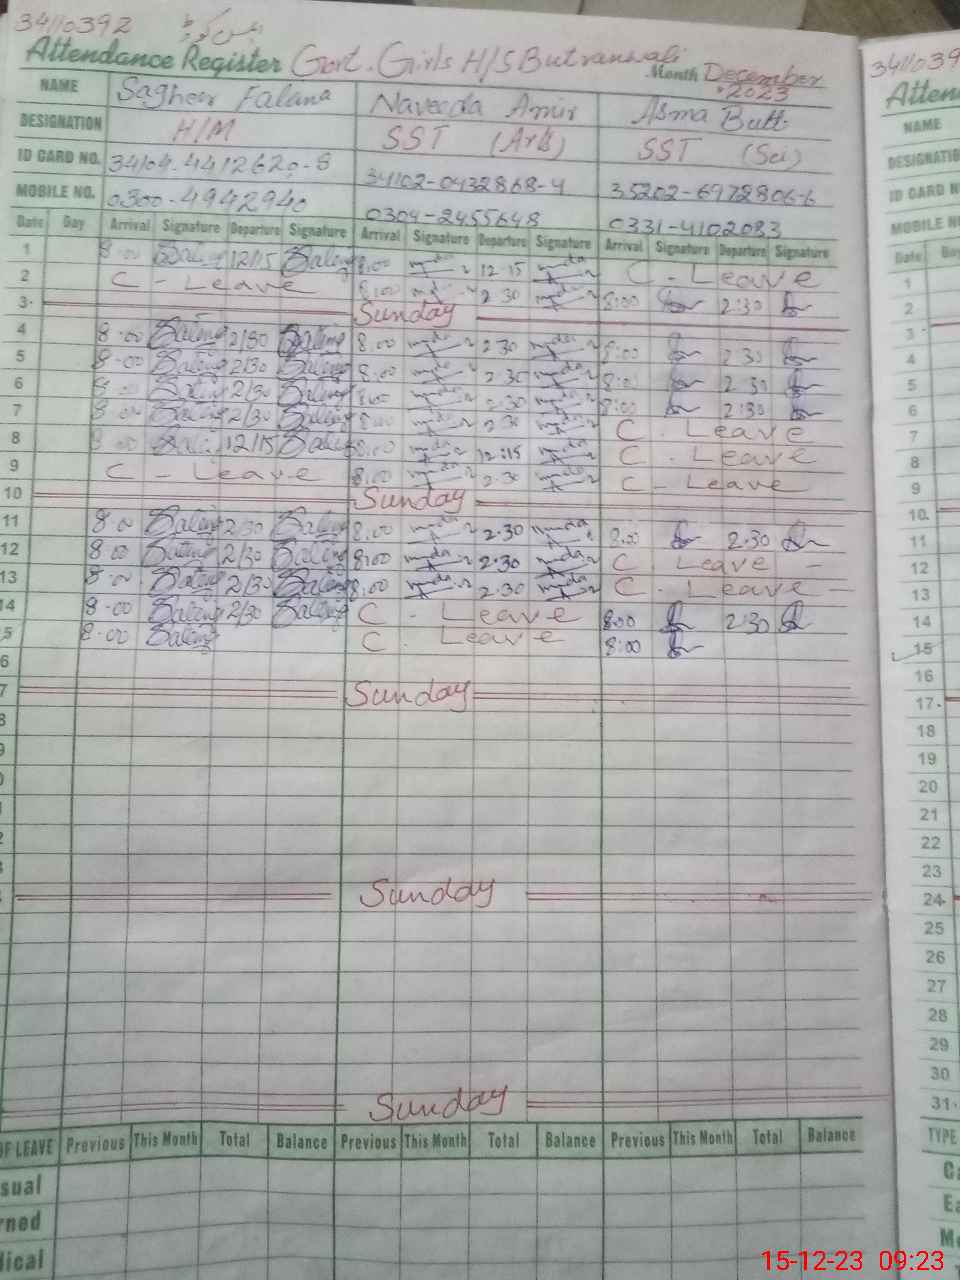 34110392
Attendance Register Govt. Girls H/S Butranwali Month December 2023
NAME Falana Naveeda Amir Asma Butt
DESIGNATION H/M SST (Arts) SST (Sci)
ID CARD NO. 34104-4412620-8 34102-0432868-4 35202-6972806-6
MOBILE NO. 0300-4942940 0304-2455648 0331-4102083
Date Day Arrival Signature Departure Signature Arrival Signature Departure Signature Arrival Signature Departure Signature
1 8.00 12/15 8.00 12.15 C - Leave
2 C - Leave 8.00 2.30 8:00 2:30
3 Sunday
4 8.00 2/30 8.00 2.30 8:00 2:30
5 8.00 2/30 8.00 2.30 8:00 2:30
6 8.00 2/30 8.00 2.30 8:00 2:30
7 8.00 2/30 8.00 2.30 C - Leave
8 8.00 12/15 8.00 12:15 C - Leave
9 C - Leave 8.00 2.30 C - Leave
10 Sunday
11 8.00 2/30 8.00 2.30 8:00 2.30
12 8.00 2/30 8:00 2.30 C Leave -
13 8.00 2/30 8.00 2.30 C - Leave -
14 8.00 2/30 C - Leave 8:00 2:30
5 8.00 C - Leave 8:00
6
7 Sunday
8
9
0
1
2
3
Sunday
Sunday
OF LEAVE Previous This Month Total Balance Previous This Month Total Balance Previous This Month Total Balance
sual
rned
dical
3411039
Atten
NAME
DESIGNATIO
ID CARD N
MOBILE NO
Date
1
2
3
4
5
6
7
8
9
10
11
12
13
14
15
16
17
18
19
20
21
22
23
24
25
26
27
28
29
30
31
TYPE
Ca
Ea
Me
15-12-23 09:23